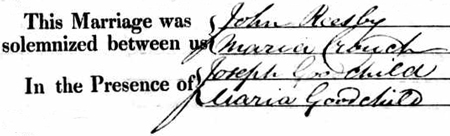 This Marriage was John Kiesby
solemnized between us Maria Crouch
In the Presence of Joseph Goodchild
Maria Goodchild